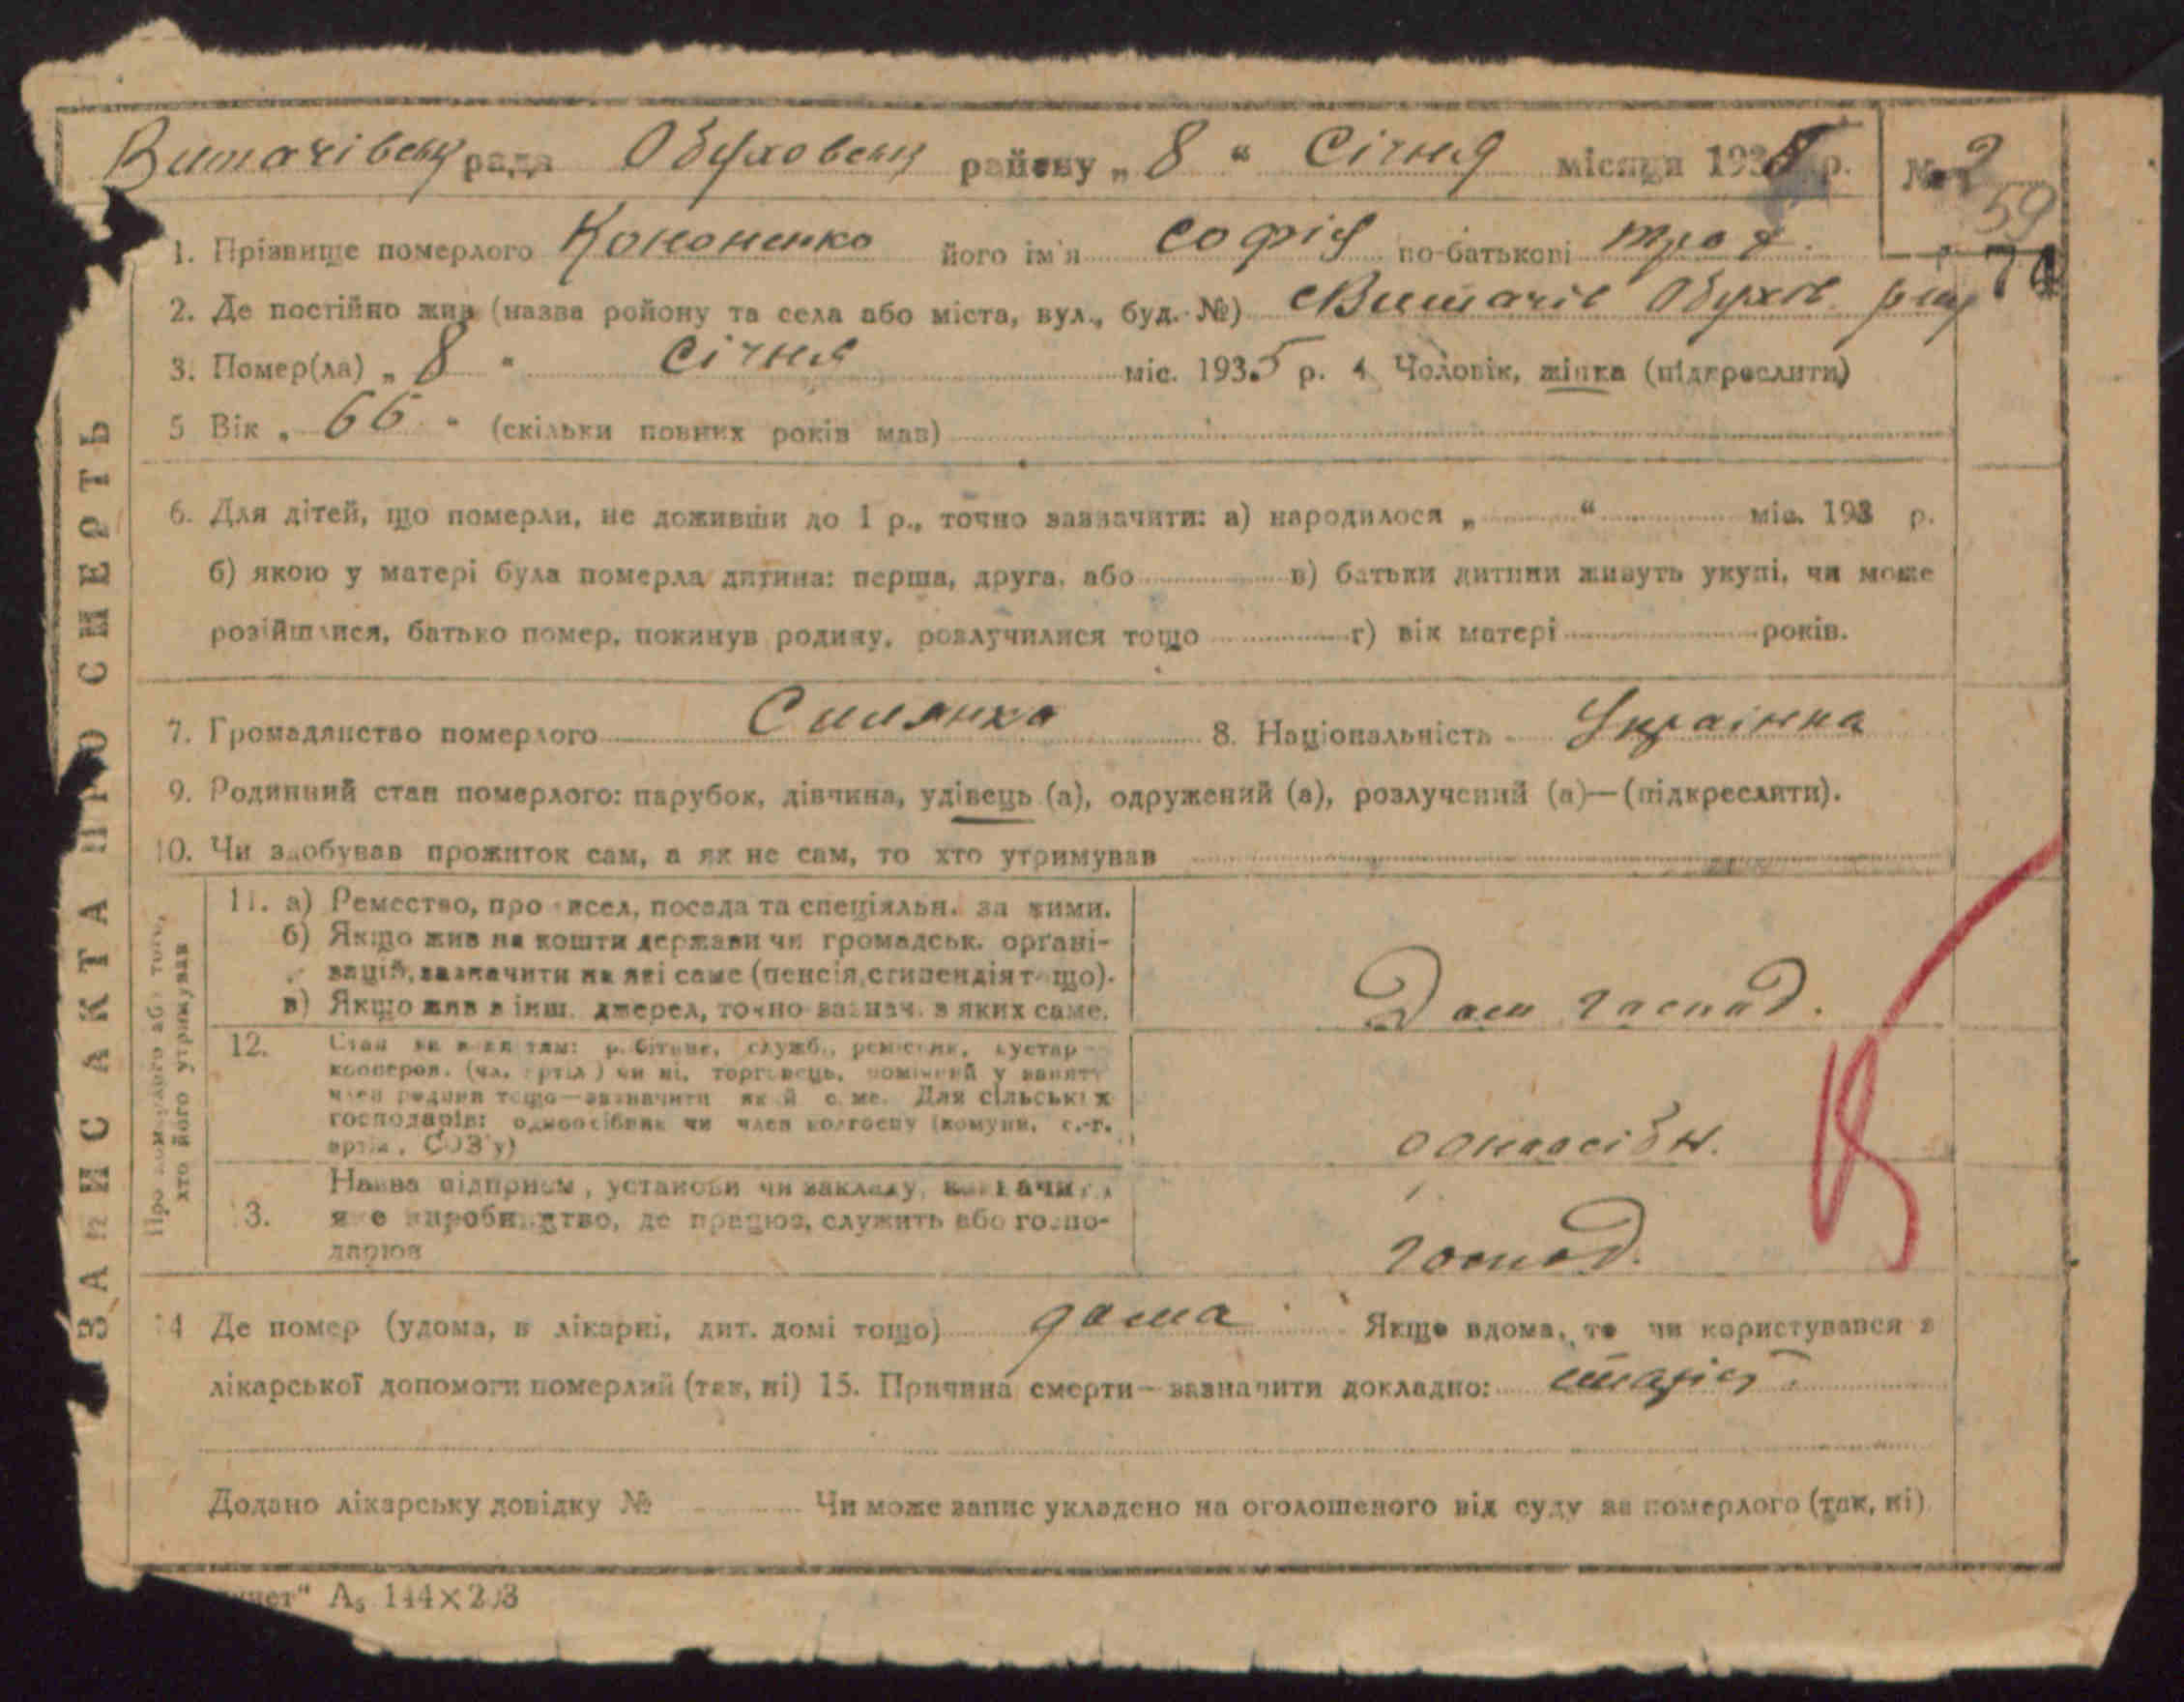 Витачівськ рада Обуховськ району „ 8 “ Січня місяця 1935 р. № 2
59
1. Прізвище померлого Кононенко його ім'я Софія по-батькові Троф.
74
2. Де постійно жив (назва району та села або міста, вул., буд. №) с Витачів Обухів. рну
3. Помер(ла) „ 8 “ Січня міс. 1935 р. 4 Чоловік, жінка (підкреслити)
5 Вік „ 66 “ (скільки повних років мав)
6. Для дітей, що померли, не доживши до 1 р., точно зазначити: а) народилося „ “ міс. 193 р.
б) якою у матері була померла дитина: перша, друга, або в) батьки дитини живуть укупі, чи може
розійшлися, батько помер, покинув родину, розлучилися тощо г) вік матері років.
7. Громадянство померлого Силянка 8. Національність Українка
9. Родинний стан померлого: парубок, дівчина, удівець (а), одружений (а), розлучений (а)—(підкреслити).
10. Чи здобував прожиток сам, а як не сам, то хто утримував
ЗАПИС АКТА ПРО СМЕРТЬ
Про померлого або того,
хто його утримував
11. а) Ремество, промисел, посада та спеціяльн. за якими.
б) Якщо жив на кошти держави чи громадськ. органі-
зацій, зазначити на які саме (пенсія, стипендія тощо).
в) Якщо жив з інш. джерел, точно зазнач. з яких саме.
Дом господ.
12. Стан за заняттям: робітник, служб., ремісник, кустар
кооперов. (чл. артіл) чи ні, торговець, помічний у занятт
член родини тощо—зазначити який саме. Для сільських
господарів: одноосібник чи член колгоспу (комуни, с.-г.
артіл, СОЗ'у)
одноосібн.
13. Назва підприєм, установи чи закладу,
яке виробництво, де працює, служить або госпо-
дарює
господ.
14 Де помер (удома, в лікарні, дит. домі тощо) дома Якщо вдома, то чи користувався з
лікарської допомоги померлий (так, ні) 15. Причина смерти—зазначити докладно: старість
Додано лікарську довідку № Чи може запис укладено на оголошеного від суду за померлого (так, ні)
А₅ 144×203